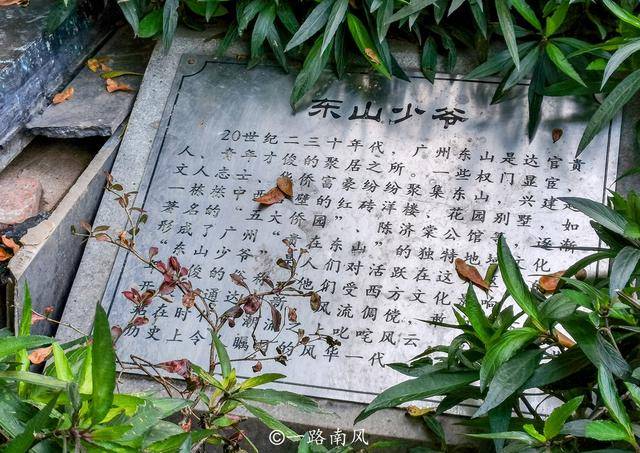 东山少爷
20世纪二三十年代，广州东山是达官贵
人、青年才俊的聚居之所。一些权门显宦，
文人志士，华侨富豪纷纷聚集东山，兴建
一栋栋中西 璧的红砖洋楼、花园别墅，如
著名的“五大侨园”、陈济棠公馆等，逐渐
形成了广州“贵在东山”的独特地 文化
“东山少爷” 是人们对活跃在这
俊的 称 们受西方文化
开 通达 新 风流倜傥，敢
站在时 潮流 上叱咤风云
历史上令 瞩目的风华一代
©一路南风